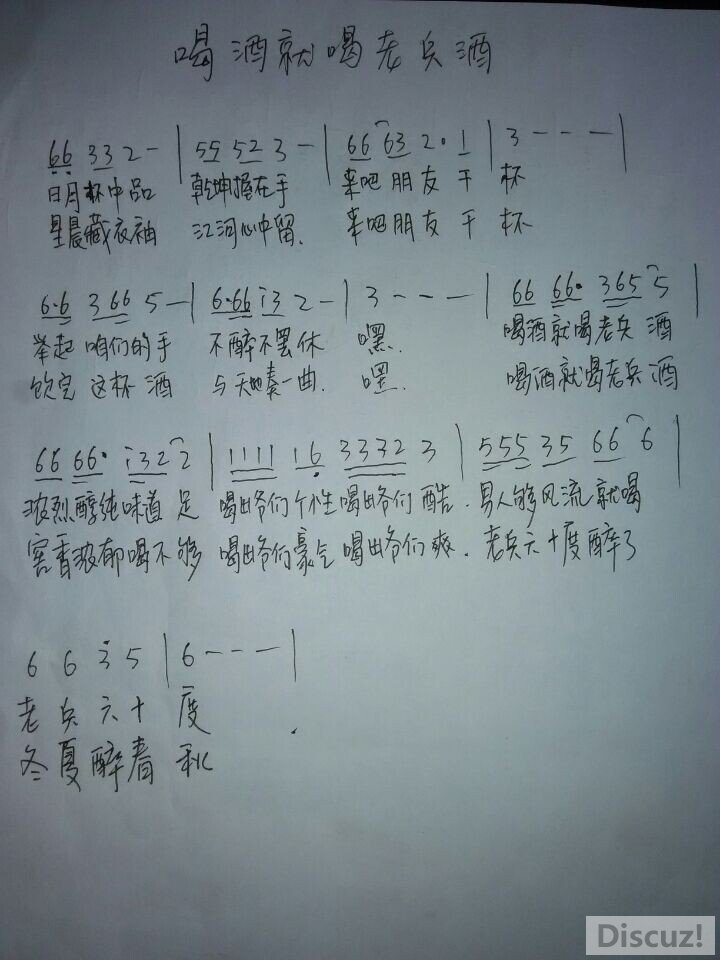 喝酒就喝老兵酒
66 33 2 - | 55 52 3 - | 66 63 2· 1 | 3 - - - |
日月杯中品 乾坤握在手 来吧朋友干杯
星晨藏衣袖 江河心中留. 来吧朋友干杯
6·6 366 5 - | 6·66 i3 2 - | 3 - - - | 66 66· 365 5 |
举起咱们的手 不醉不罢休 嘿. 喝酒就喝老兵酒
饮完这杯酒 与天地奏一曲. 嘿. 喝酒就喝老兵酒
66 66· i32 2 | 1111 16 3332 3 | 555 35 66 6 |
浓烈醇纯味道足 喝出爷们个性喝出爷们酷. 男人够风流就喝
窖香浓郁喝不够 喝出爷们豪气喝出爷们爽. 老兵六十度醉了
6 6 3 5 | 6 - - - |
老兵六十度
冬夏醉春秋
Discuz!